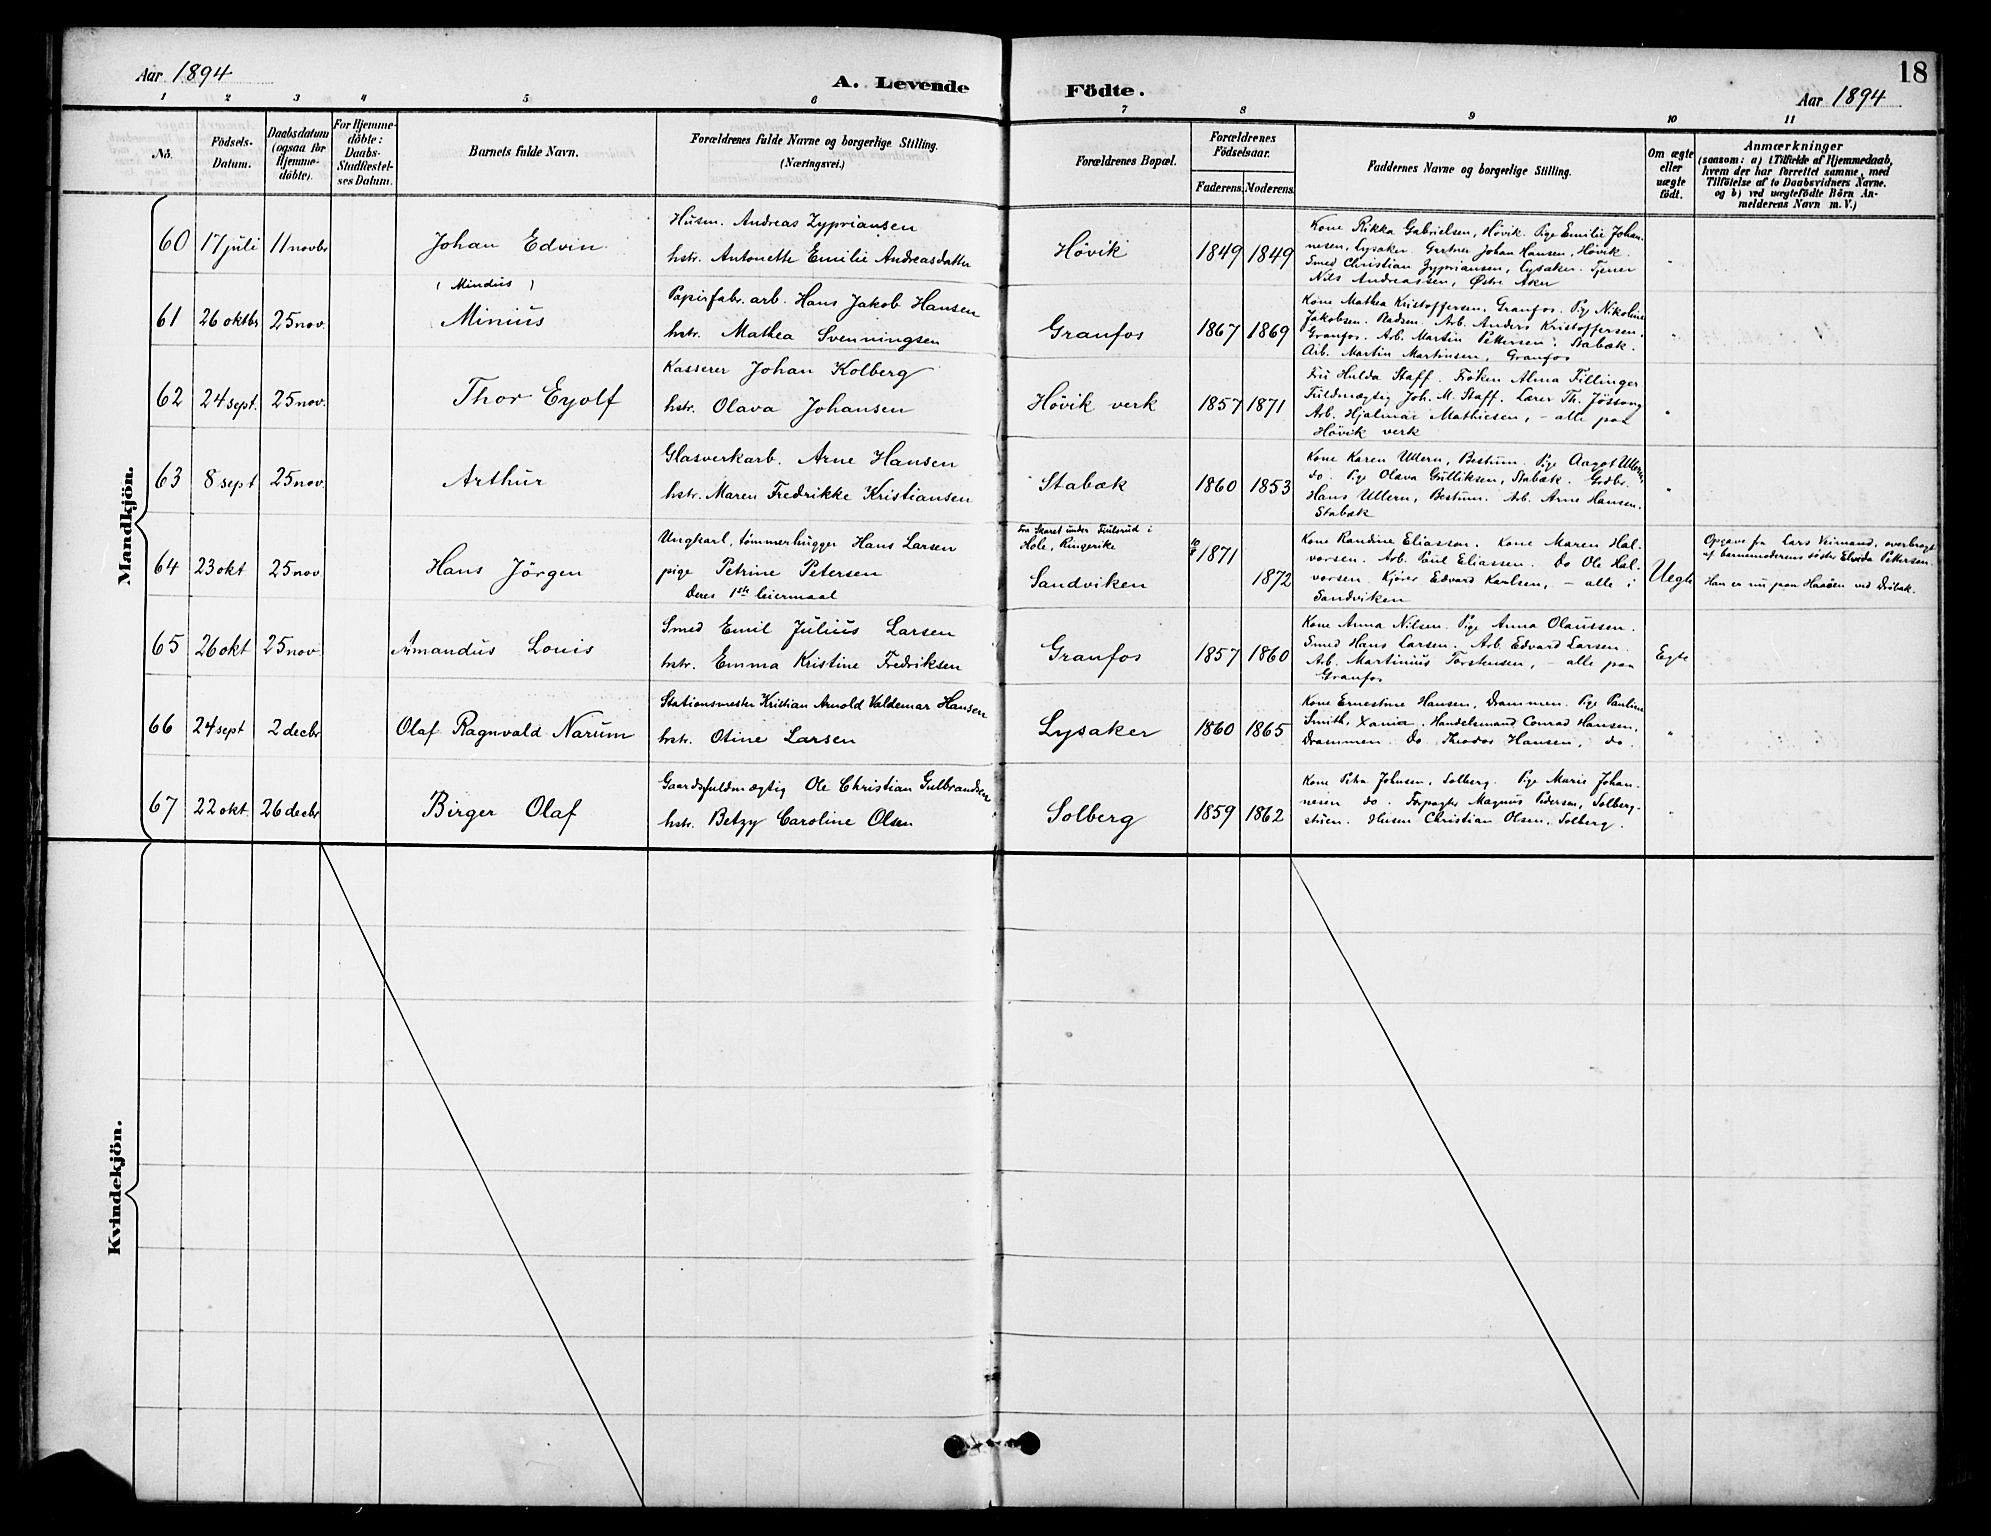 Aar 1894
A. Levende
Födte.
18
Aar 1894
1 2 3 4 5 6 7 8 9 10 11
No.
Födsels-
Datum.
Daabsdatum
(ogsaa for
Hjemme-
döbte).
For Hjemme-
döbte:
Daabs-
Stadfæstel-
ses Datum.
Barnets fulde Navn.
Forældrenes fulde Navne og borgerlige Stilling.
(Næringsvei.)
Forældrenes Bopæl.
Forældrenes
Födselsaar.
Faderens. Moderens.
Faddernes Navne og borgerlige Stilling.
Om ægte
eller
uægte
födt.
Anmærkninger
(saasom: a) i Tilfælde af Hjemmedaab,
hvem der har forrettet samme, med
Tilföielse af to Daabsvidners Navne.
og b) ved uægtefödte Börn An-
melderens Navn m. V.)
Mandkjön.
60 17 juli 11 novbr
Johan Edvin
Husm. Andreas Zypriansen
hstr. Antonette Emilie Andreasdatter
Hövik
1849 1849
Kone Rikka Gabrielsen, Hövik. Pige Emilie Johan-
nesen, Lysaker. Gartner Johan Hansen, Hövik.
Smed Christian Zypriansen, Lysaker. Tjener
Nils Andreassen, Østre Aker
"
61 26 oktbr 25 nov.
( Mindus )
Minius
Papirfabr. arb. Hans Jakob Hansen
hstr. Mathea Svenningsen
Granfos
1867 1869
Kone Mathea Kristoffersen, Granfos. Pige Nikoline
Jakobsen. Arb. Anders Kristoffersen.
Granfos. Arb. Martin Pettersen, Stabæk.
Arb. Martin Martinsen, Granfos
"
62 24 sept. 25 nov.
Thor Eyolf
Kasserer Johan Kolberg
hstr. Olava Johansen
Hövik verk
1857 1871
Fru Hulda Staff. Fröken Alma Fillinger
Fuldmægtig Joh. M. Staff. Lærer Th. Jössong
Arb. Hjalmar Mathiesen, – alle paa
Hövik verk
"
63 8 sept 25 nov.
Arthur
Glasverkarb. Arne Hansen
hstr. Maren Fredrikke Kristiansen
Stabæk
1860 1853
Kone Karen Ullern, Bestum. Pige Aagot Ullern,
do. Pige Olava Gulliksen, Stabæk. Grdbr.
Hans Ullern, Bestum. Arb. Arne Hansen.
Stabæk
"
64 23 okt 25 nov
Hans Jörgen
Ungkarl, tömmerhugger Hans Larsen
pige Petrine Petersen
Deres 1ste leiermaal
Fra Skaret under i
Hole, Ringerike
Sandviken
1871
1872
Kone Randine Eliassen. Kone Maren Hal-
vorsen. Arb. Paul Eliassen. Do Ole Hal-
vorsen. Kjörer Edvard Karlsen, – alle i
Sandviken
Uegte
Opgave fra Lars overbragt
af barnemoderens söster Pettersen.
Han er nu paa Haaöen ved Dröbak.
65 26 okt 25 nov
Armandus Louis
Smed Emil Julius Larsen
hstr. Emma Kristine Fredriksen
Granfos
1857 1860
Kone Anna Nilsen. Pige Anna Olaussen.
Smed Hans Larsen. Arb. Edvard Larsen.
Arb. Martinius Torstensen, – alle paa
Granfos
Egte
66 24 sept 2 decbr
Olaf Ragnvald Narum
Stationsmester Kristian Arnold Valdemar Hansen
hstr. Otine Larsen
Lysaker
1860 1865
Kone Ernestine Hansen, Drammen. Pige Pauline
Smith, Xania. Handelsmand Conrad Hansen,
Drammen. Do. Theodor Hansen, do.
"
67 22 okt. 26 decbr
Birger Olaf
Gaardsfuldmægtig Ole Christian Gulbrandsen
hstr. Betzy Caroline Olsen
Solberg
1859 1862
Kone Petra Johnsen, Solberg. Pige Marie Johan-
nesen do. Forpagter Magnus Pedersen, Solberg-
stuen. Husm Christian Olsen, Solberg.
"
Kvindekjön.